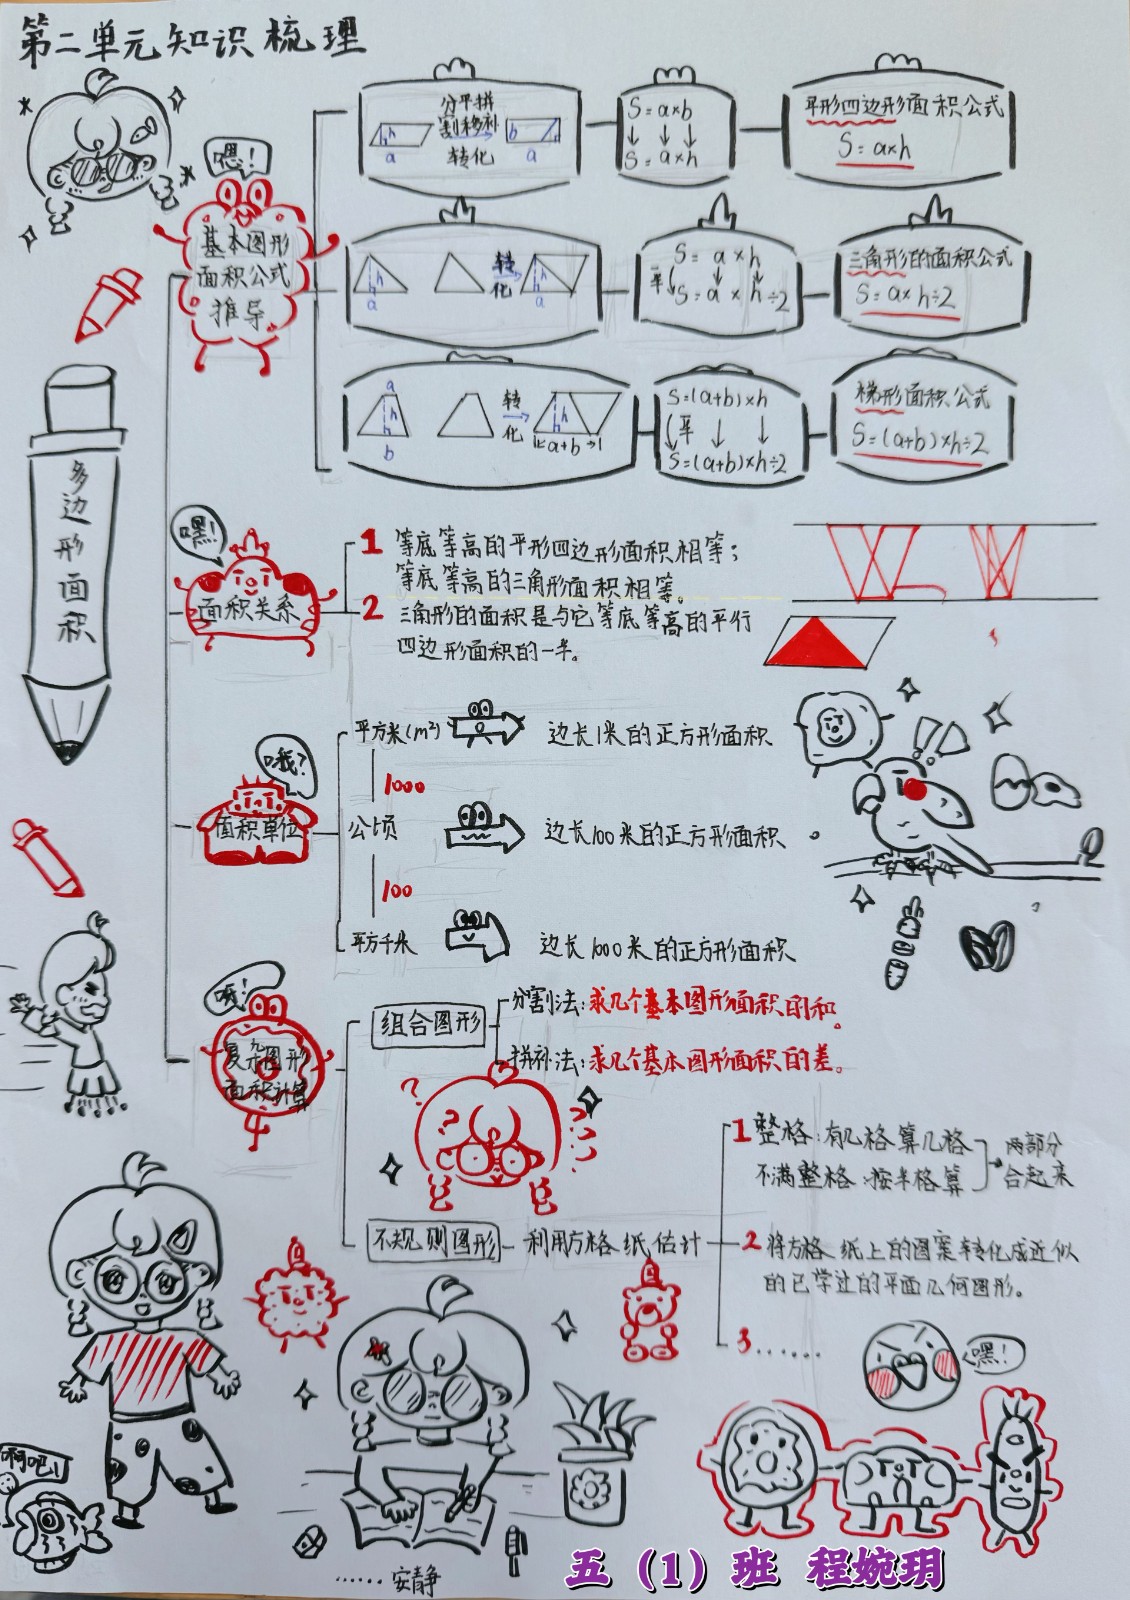 第二单元知识梳理
多边形面积
嗯！
基本图形
面积公式
推导
分平拼
割移补
转化
h
a
b
a
S=a×b
S=a×h
平形四边形面积公式
S=a×h
h
a
转
化
h
a
S=a×h
平
S=a×h÷2
三角形的面积公式
S=a×h÷2
a
h
b
转
化
h
a+b
S=(a+b)×h
平
S=(a+b)×h÷2
梯形面积公式
S=(a+b)×h÷2
嘿！
面积关系
1 等底等高的平形四边形面积相等；
等底等高的三角形面积相等。
2 三角形的面积是与它等底等高的平行
四边形面积的一半。
哦？
面积单位
平方米(m²)
边长1米的正方形面积
1000
公顷
边长100米的正方形面积
100
平方千米
边长1000米的正方形面积
哦！
复杂图形
面积计算
组合图形
分割法：求几个基本图形面积的和。
拼补法：求几个基本图形面积的差。
? ?
不规则图形
利用方格纸估计
1 整格：有几格算几格
不满整格：按半格算
两部分
合起来
2 将方格纸上的图案转化成近似
的已学过的平面几何图形。
3……
嘿！
啊吧！
……安静
五（1）班 程婉玥